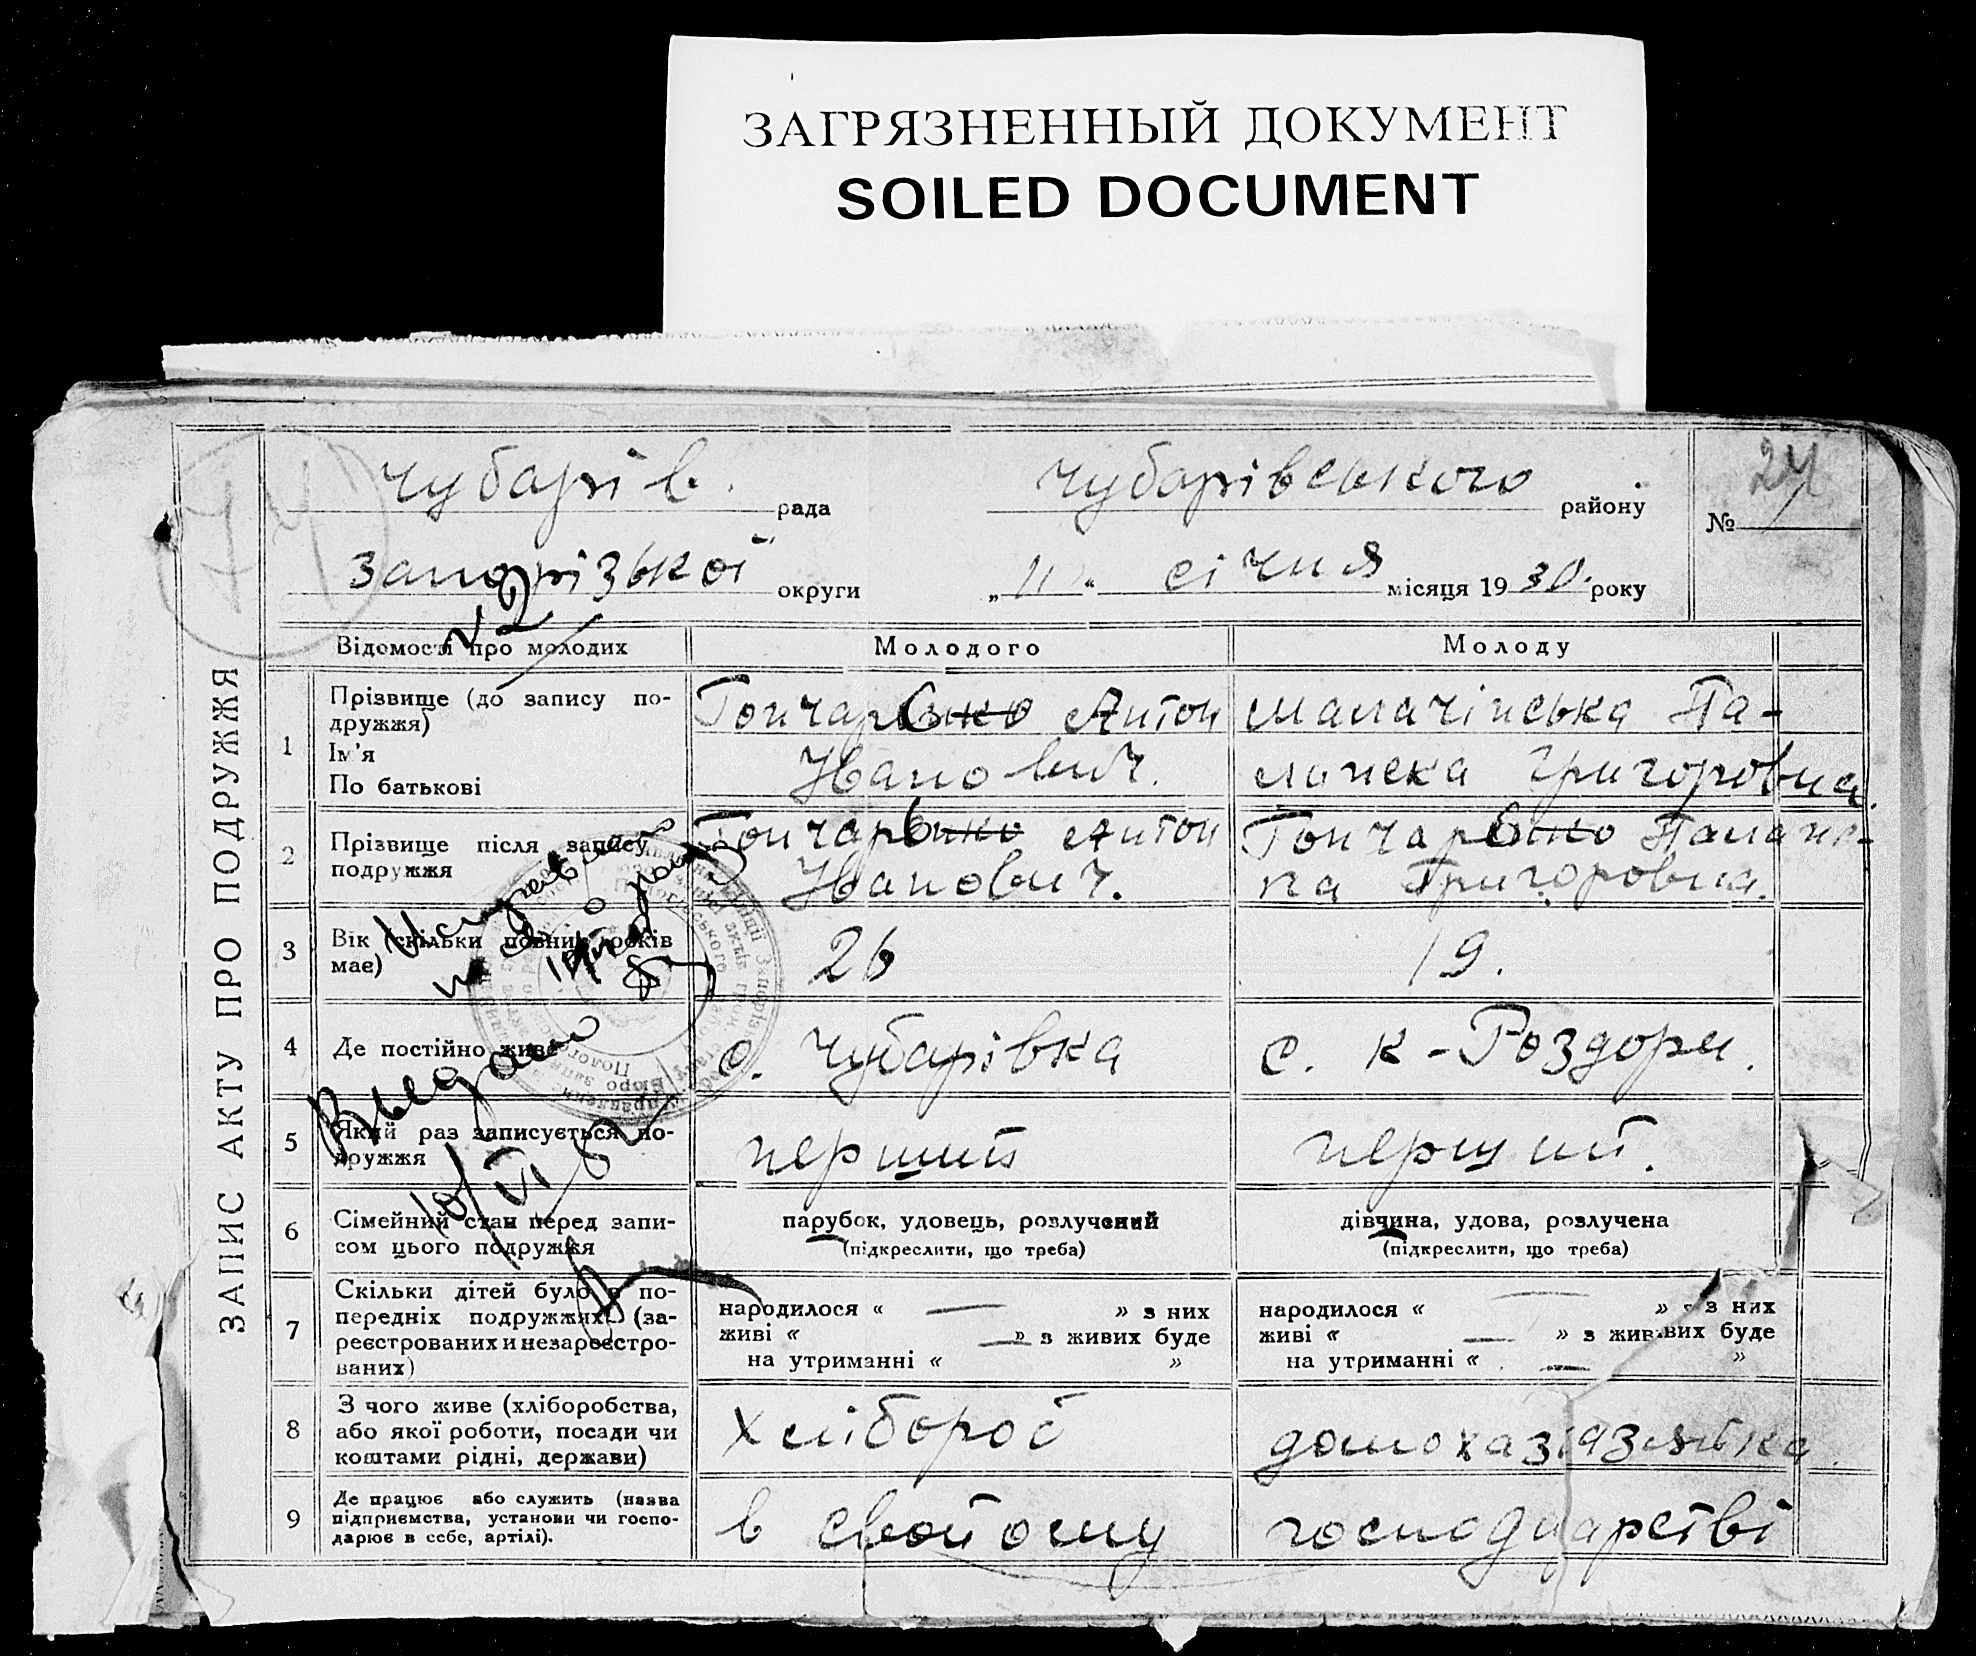 ЗАГРЯЗНЕННЫЙ ДОКУМЕНТ
SOILED DOCUMENT
74
Чубарів. рада Чубарівського району
№ 24
Запорізької округи „11" січня місяця 1930 року
ЗАПИС АКТУ ПРО ПОДРУЖЖЯ
Відомості про молодих Молодого Молоду
1 Прізвище (до запису по-
дружжя)
Ім'я
По батькові
Гончаренко Антон
Іванович.
Малачінська Па-
лажка Григоровна.
2 Прізвище після запису
подружжя
Гончаренко Антон
Іванович.
Гончаренко
Григоровна.
3 Вік (скільки повних років
має)
26
19.
4 Де постійно живе
с. Чубарівка
с. К-Роздори.
5 Який раз записується по-
дружжя
перший
перший.
6 Сімейний стан перед запи-
сом цього подружжя
парубок, удовець, розлучений
(підкреслити, що треба)
дівчина, удова, розлучена
(підкреслити, що треба)
7 Скільки дітей було в по-
передніх подружжях (за-
реєстрованих и незареєстро-
ваних)
народилося « — » з них
живі « — » з живих буде
на утриманні « »
народилося « — » з них
живі « — » з живих буде
на утриманні « — »
8 З чого живе (хліборобства,
або якої роботи, посади чи
коштами рідні, держави)
хлібороб
домохазяйка
9 Де працює або служить (назва
підприємства, установи чи госпо-
дарює в себе, артілі).
в свойому
господарстві
Выдано